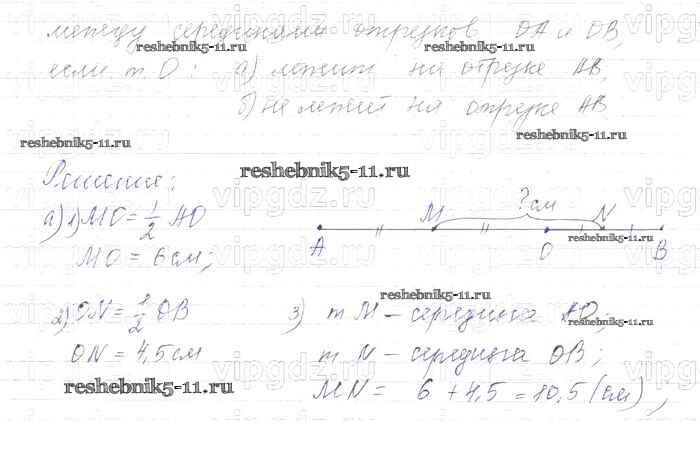 между серединами отрезков OA и OB,
reshebnik5-11.ru reshebnik5-11.ru
если т. O: а) лежит на отрезке AB,
б) не лежит на отрезке AB
reshebnik5-11.ru reshebnik5-11.ru
Решение:
reshebnik5-11.ru
vipgdz.ru vipgdz.ru vipgdz.ru
а) 1) MO = 1/2 AO
M ? см N
MO = 6 см;
A O B
reshebnik5-11.ru
2) ON = 1/2 OB
3) т M – середина AO;
reshebnik5-11.ru
reshebnik5-11.ru
ON = 4,5 см
т N – середина OB;
reshebnik5-11.ru
MN = 6 + 4,5 = 10,5 (см),